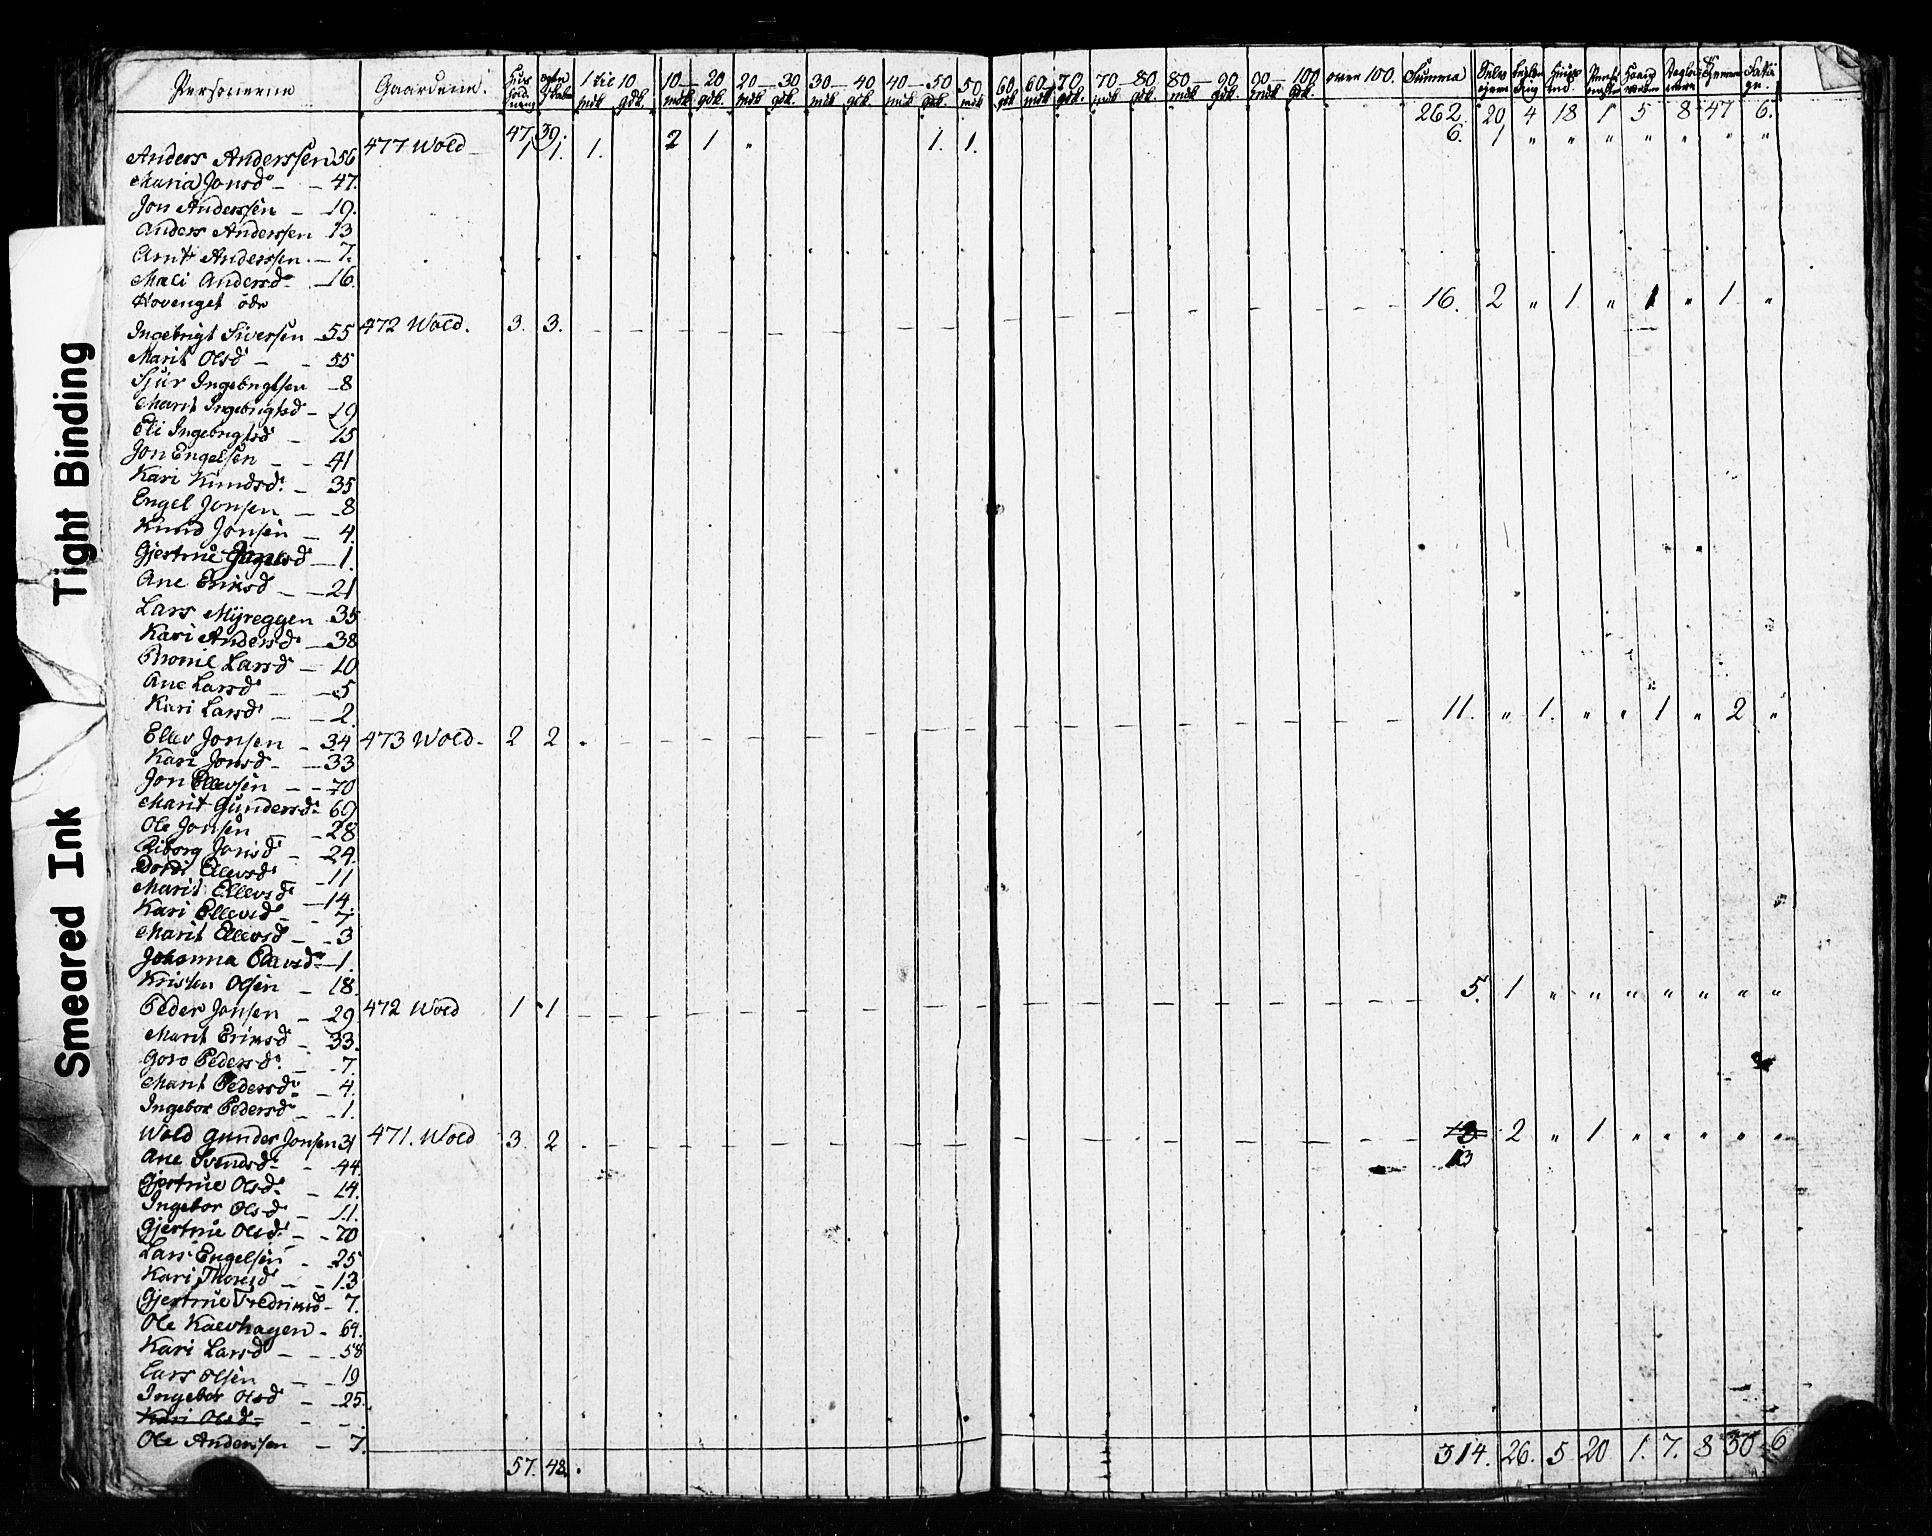 Personerne Gaardene. 1 til 10 10–20 20–30 30–40 40–50 50. 60 60–70 70–80 80–90 90–100 over 100. Summa
mdk gdk. mdk gdk. mdk gdk. mdk gdk. mdk gdk. mdk gdk mdk gdk. mdk gdk. mdk gdk. mdk gdk.
47 39. 262. 20 4 18 1 5 8 47 6.
Anders Anderssen 56 477 Wold 1 1. 1. 2 1 " 1. 1. 6. 1 " " " " " " "
Maria Jonsd. — 47.
Jon Anderssen — 19.
Anders Anderssen 13
Arnt Anderssen. — 7.
Mali Andersd. — 16.
Hovenget öde 16. 2 " 1. " 1 " 1 "
Ingebrigt Siversen — 55 472 Wold. 3. 3.
Marit Olsd — 55
Sjur Ingebrigtsen — 8
Marit Ingebrigtsd — 19
Eli Ingebrigtsd — 15
Jon Engelsen — 41
Kari Knudsd. — 35
Engel Jonsen — 8
Knud Jonsen — 4.
Gjertrue — 1.
Ane Eriksd — 21
Lars Myreggen 35
Kari Andersd. — 38
Larsd — 10
Ane Larsd — 5
Kari Larsd — 2. 11. " 1. " " 1 " 2 "
Ellev Jonsen — 34 473 Wold. 2 2
Kari Jonsd — 33
Jon Ellevsen — 70
Marit Gundersd. 69
Ole Jonsen — 28
Jonsd — 24.
Dordi Ellevsd — 11
Marit Ellevsd — 14.
Kari Ellevsd — 7
Marit Ellevsd — 3
Johanna Ellevsd — 1.
Kristen Olsen — 18. 5. 1 " " " " " " "
Peder Jonsen — 29 472 Wold 1 1
Marit Eriksd — 33.
Goro Pedersd. — 7.
Marit Pedersd. — 4.
Ingebor Pedersd — 1.
Wold Gunder Jonsen 31 471. Wold 3. 2 2 " 1 " " " " "
Ane Svendsd. — 44. 13
Gjertrue Olsd. — 14.
Ingebor Olsd. — 11.
Gjertrue Olsd. — 70
Lars Engelsen — 25
Kari Thoresd — 13
Gjertrue Fredriksd — 7.
Ole Kalvhagen — 69.
Kari Larsd — 58
Lars Olsen — 19
Ingebor Olsd — 25.
Kari Olsd.
Ole Anderssen — 7.
57. 48. 314. 26. 5 20 1. 7. 8 50 6
Tight Binding
Smeared Ink